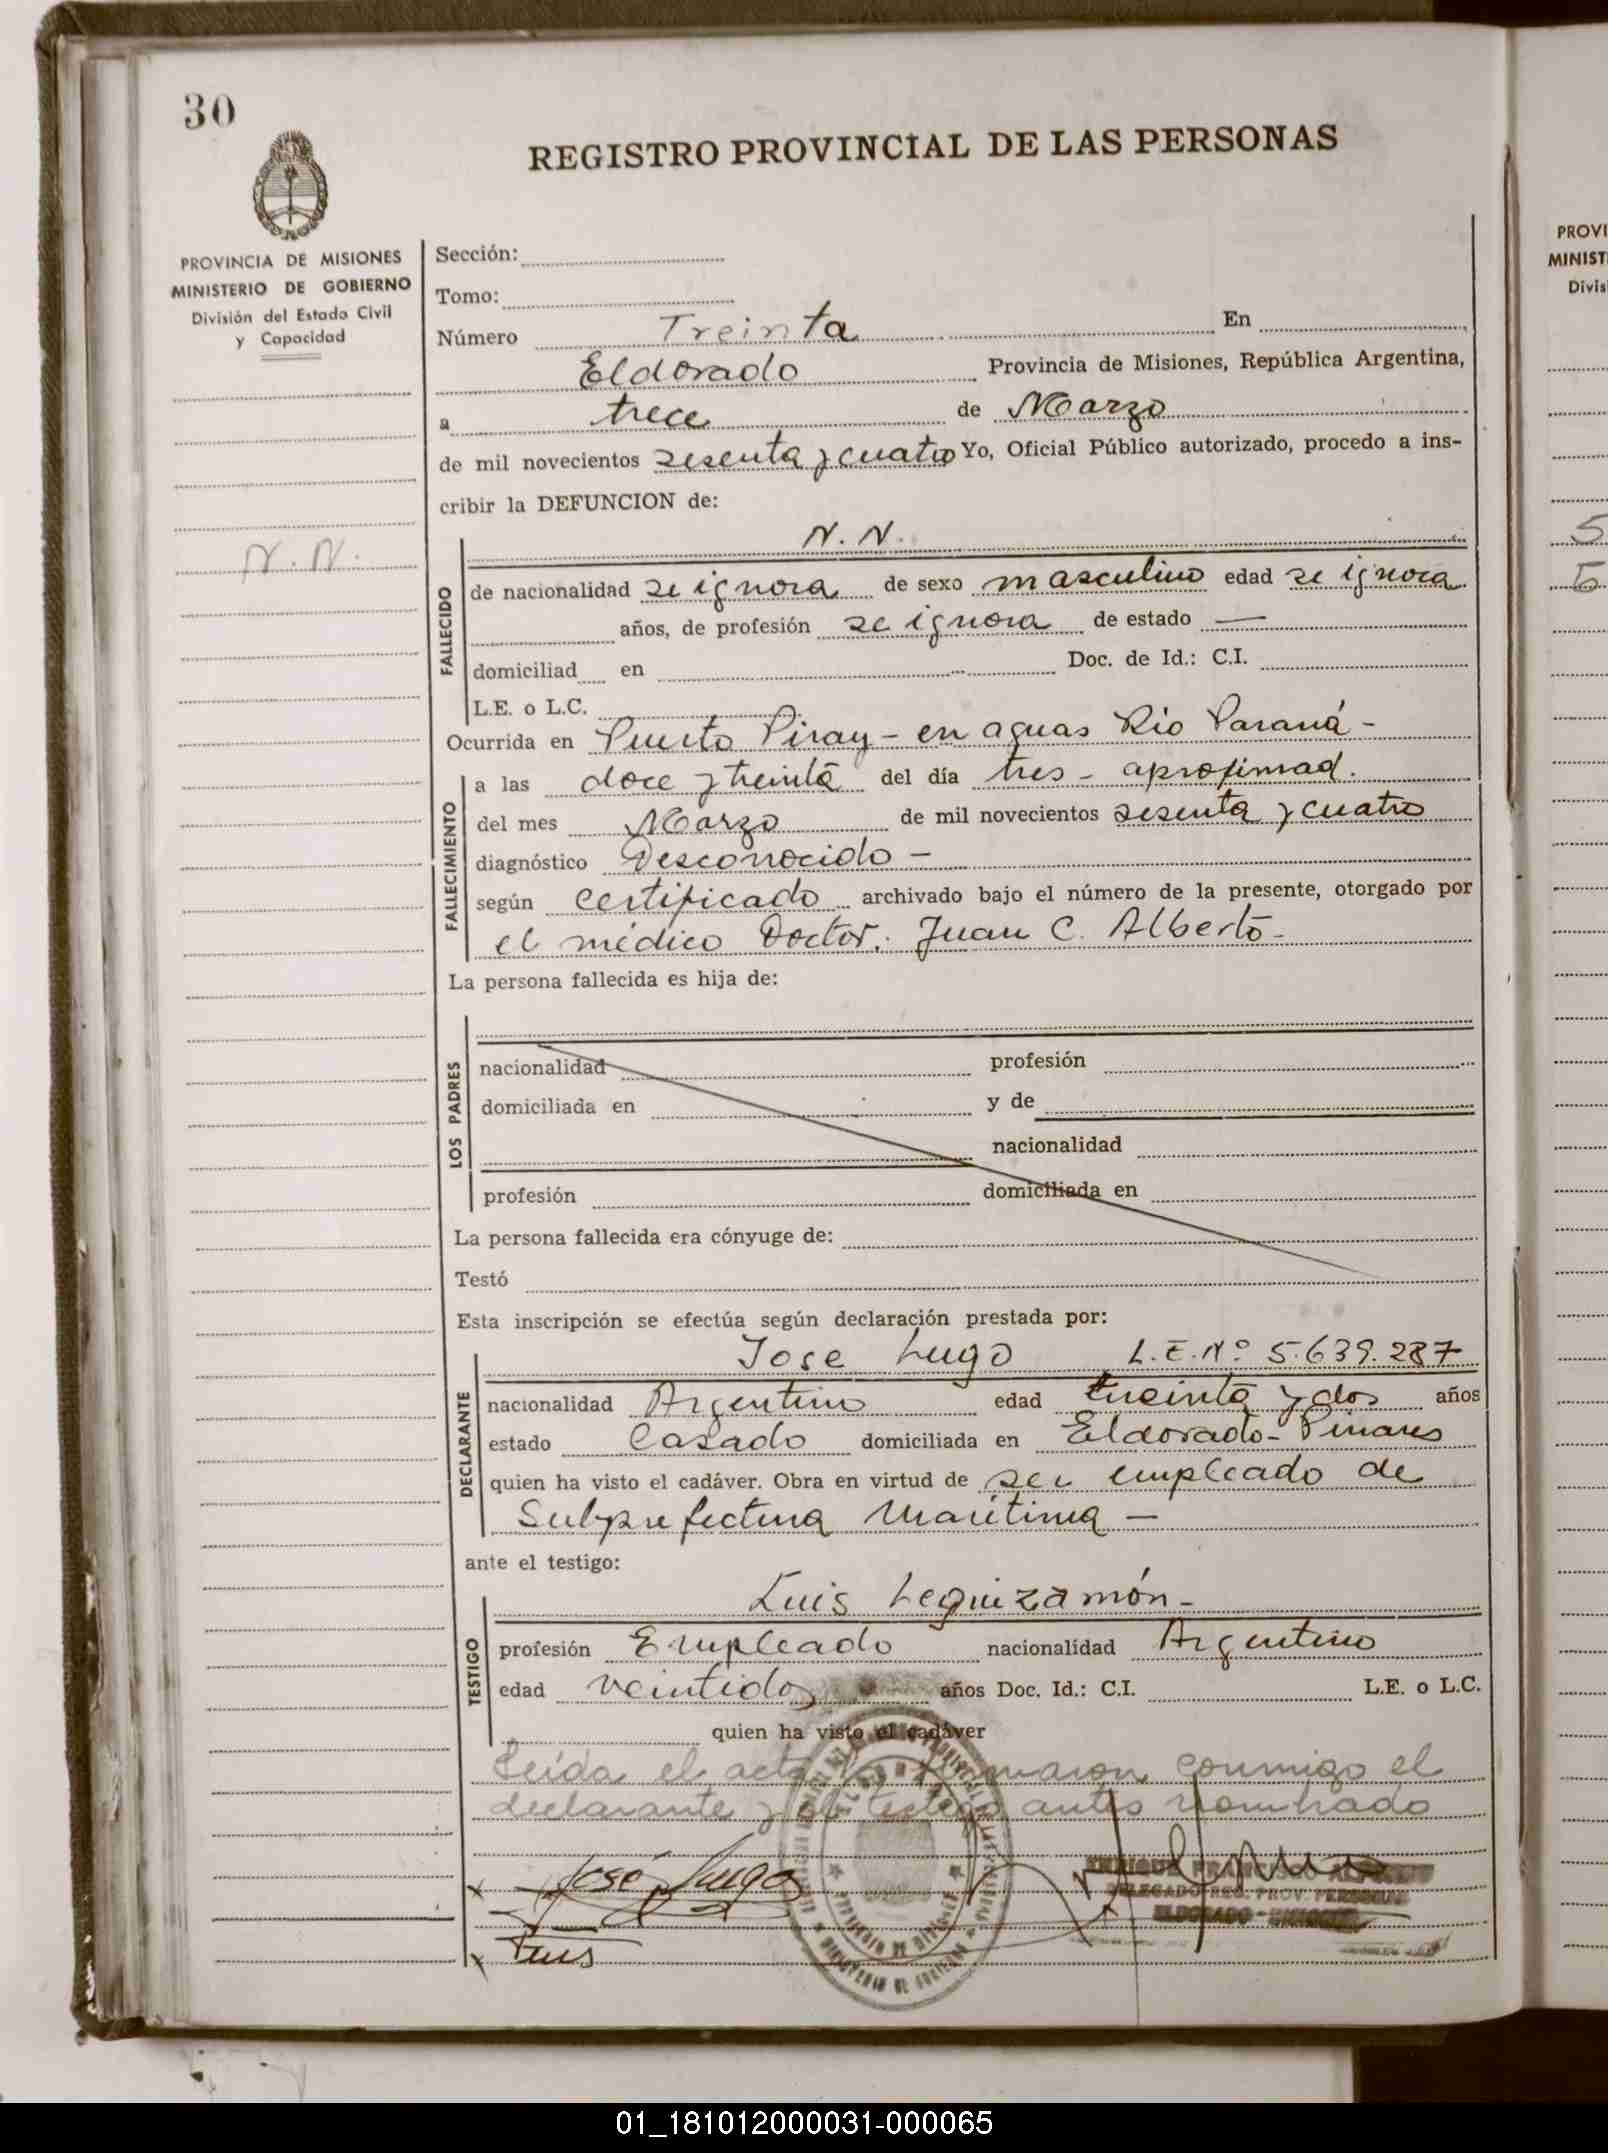 30
REGISTRO PROVINCIAL DE LAS PERSONAS
PROVINCIA DE MISIONES
MINISTERIO DE GOBIERNO
División del Estado Civil
y Capacidad
N. N.
Sección:
Tomo:
Número Treinta En
Eldorado Provincia de Misiones, República Argentina,
a trece de Marzo
de mil novecientos sesenta y cuatro Yo, Oficial Público autorizado, procedo a ins-
cribir la DEFUNCION de:
N. N.
FALLECIDO
de nacionalidad se ignora de sexo masculino edad se ignora
años, de profesión se ignora de estado —
domiciliad en Doc. de Id.: C.I.
L.E. o L.C.
Ocurrida en Puerto Piray - en aguas Rio Paraná -
FALLECIMIENTO
a las doce y treinta del día tres - aproximad.
del mes Marzo de mil novecientos sesenta y cuatro
diagnóstico Desconocido -
según certificado archivado bajo el número de la presente, otorgado por
el médico Doctor. Juan C. Alberto -
La persona fallecida es hija de:
LOS PADRES
nacionalidad profesión
domiciliada en y de
nacionalidad
profesión domiciliada en
La persona fallecida era cónyuge de:
Testó
Esta inscripción se efectúa según declaración prestada por:
DECLARANTE
Jose Lugo L.E.Nº 5.639.287
nacionalidad Argentino edad treinta y dos años
estado Casado domiciliada en Eldorado - Pinares
quien ha visto el cadáver. Obra en virtud de ser empleado de
Subprefectura Maritima —
ante el testigo:
TESTIGO
Luis Leguizamón -
profesión Empleado nacionalidad Argentino
edad veintidos años Doc. Id.: C.I. L.E. o L.C.
quien ha visto el cadáver
Leída el acta la firmaron conmigo el
declarante y el testigo antes nombrado
José Lugo
ENRIQUE FRANCISCO
DELEGADO REG. PROV. PERSONAS
ELDORADO - MISIONES
Luis
PROVI
MINIST
Divis
01_181012000031-000065